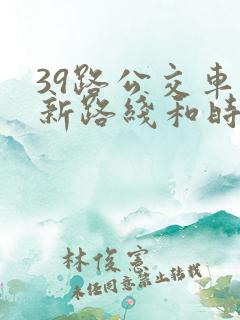 39路公交车
新路线和时
林俊宪
未经同意禁止转载